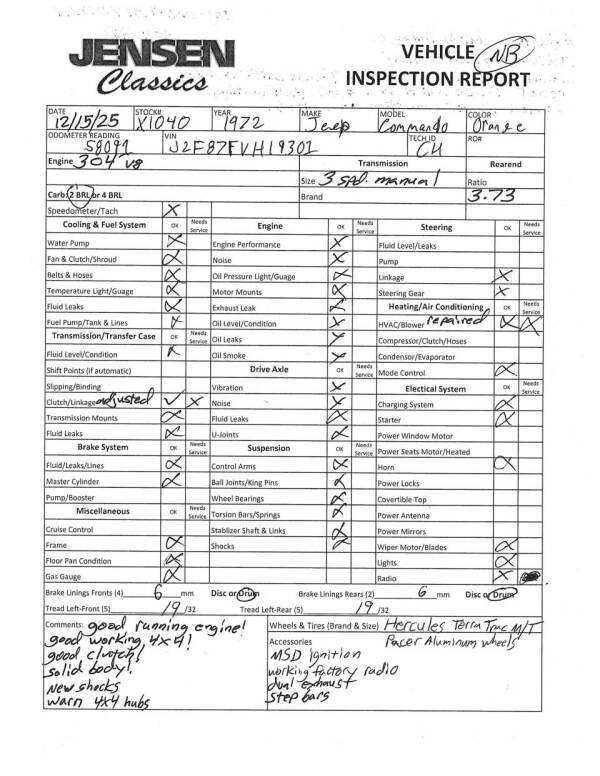 JENSEN
Classics
VEHICLE NB
INSPECTION REPORT
DATE 12/15/25 STOCK# X1040 YEAR 1972 MAKE Jeep MODEL Commando COLOR Orange
ODOMETER READING 58091 VIN J2F87FVH19301 TECH ID CH RO#
Engine 304 V8 Transmission Rearend
Size 3 spd. manual Ratio
Carb: 2 BRL or 4 BRL Brand 3.73
Speedometer/Tach X
Cooling & Fuel System OK Needs Service Engine OK Needs Service Steering OK Needs Service
Water Pump X Engine Performance X Fluid Level/Leaks
Fan & Clutch/Shroud X Noise X Pump
Belts & Hoses X Oil Pressure Light/Guage X Linkage X
Temperature Light/Guage X Motor Mounts X Steering Gear X
Fluid Leaks X Exhaust Leak X Heating/Air Conditioning OK Needs Service
Fuel Pump/Tank & Lines X Oil Level/Condition X HVAC/Blower repaired X X
Transmission/Transfer Case OK Needs Service Oil Leaks X Compressor/Clutch/Hoses
Fluid Level/Condition X Oil Smoke X Condensor/Evaporator
Shift Points (if automatic) Drive Axle OK Needs Service Mode Control X
Slipping/Binding Vibration X Electical System OK Needs Service
Clutch/Linkage adjusted ✓ X Noise X Charging System X
Transmission Mounts X Fluid Leaks X Starter X
Fluid Leaks X U-Joints X Power Window Motor
Brake System OK Needs Service Suspension OK Needs Service Power Seats Motor/Heated
Fluid/Leaks/Lines X Control Arms X Horn X
Master Cylinder X Ball Joints/King Pins X Power Locks
Pump/Booster Wheel Bearings X Covertible Top
Miscellaneous OK Needs Service Torsion Bars/Springs X Power Antenna
Cruise Control Stablizer Shaft & Links X Power Mirrors
Frame X Shocks X Wiper Motor/Blades X
Floor Pan Condition X Lights X
Gas Gauge X Radio X
Brake Linings Fronts (4) 6 mm Disc or Drum Brake Linings Rears (2) 6 mm Disc or Drum
Tread Left-Front (5) 19 /32 Tread Left-Rear (5) 19 /32
Comments: good running engine! Wheels & Tires (Brand & Size) Hercules Terra Trac M/T
good working 4x4! Accessories Pacer Aluminum wheels
good clutch! MSD ignition
solid body! working factory radio
New shocks dual exhaust
warn 4x4 hubs step bars